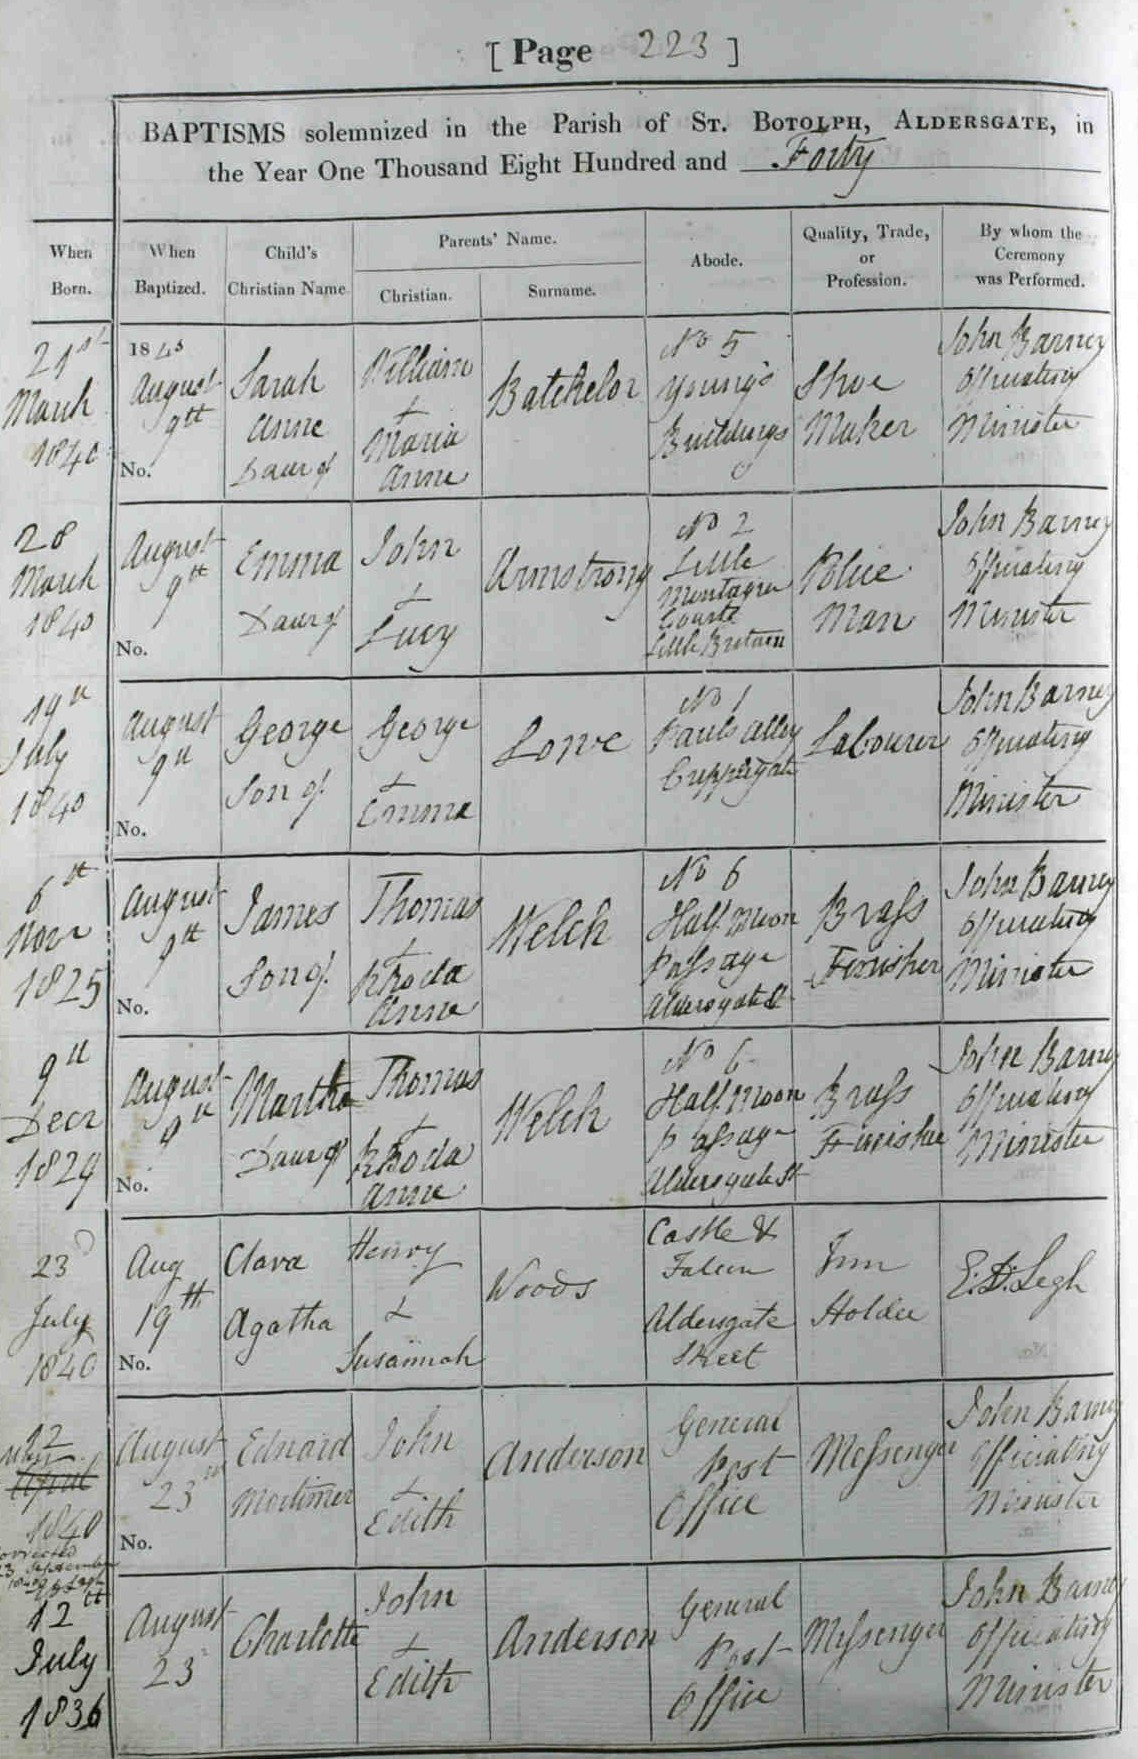 [ Page 223 ]
BAPTISMS solemnized in the Parish of ST. BOTOLPH, ALDERSGATE, in
the Year One Thousand Eight Hundred and Forty
When
Born.
When
Baptized.
Child's
Christian Name
Parents' Name.
Christian.
Surname.
Abode.
Quality, Trade,
or
Profession.
By whom the
Ceremony
was Performed.
21st
March
1840
1840
August
9th
No.
Sarah
Anne
Daur of
William
&
Maria
Anne
Batchelor
No 5
Young's
Buildings
Shoe
Maker
John Barney
Officiating
Minister
28
March
1840
August
9th
No.
Emma
Daur of
John
&
Lucy
Armstrong
No 2
Little
Montague
Courte
Little Britain
Police
Man
John Barney
Officiating
Minister
19th
July
1840
August
9th
No.
George
Son of
George
&
Emma
Lowe
No 1
Pauls alley
Cripplegate
Labourer
John Barney
Officiating
Minister
6th
Novr
1825
August
9th
No.
James
Son of
Thomas
&
Rhoda
Anne
Welch
No 6
Half Moon
Passage
Aldersgate St
Brass
Finisher
John Barney
Officiating
Minister
9th
Decr
1829
August
9th
No.
Martha
Daur of
Thomas
&
Rhoda
Anne
Welch
No 6
Half Moon
Passage
Aldersgate St
Brass
Finisher
John Barney
Officiating
Minister
23d
July
1840
Aug
19th
No.
Clara
Agatha
Henry
&
Susannah
Woods
Castle &
Falcon
Aldersgate
Street
Inn
Holder
E. D. Legh
12
May
April
1840
Corrected
September
August
23rd
No.
Edward
Mortimer
John
&
Edith
Anderson
General
Post
Office
Messenger
John Barney
Officiating
Minister
12th
July
1836
August
23
Charlotte
John
&
Edith
Anderson
General
Post
Office
Messenger
John Barney
Officiating
Minister